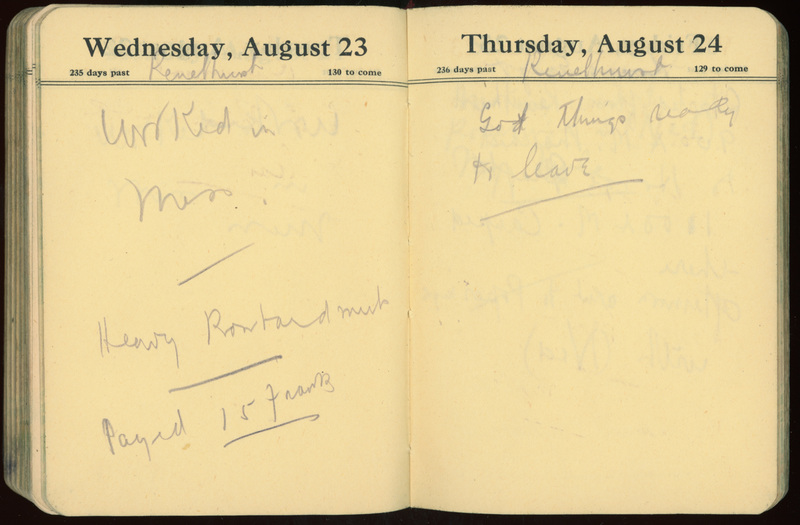 Wednesday, August 23
235 days past
130 to come
Renelhurst
Worked in
Mess.
Heavy Bombardment
Payed 15 Franks
Thursday, August 24
236 days past
129 to come
Renelhurst
Got things ready
to leave